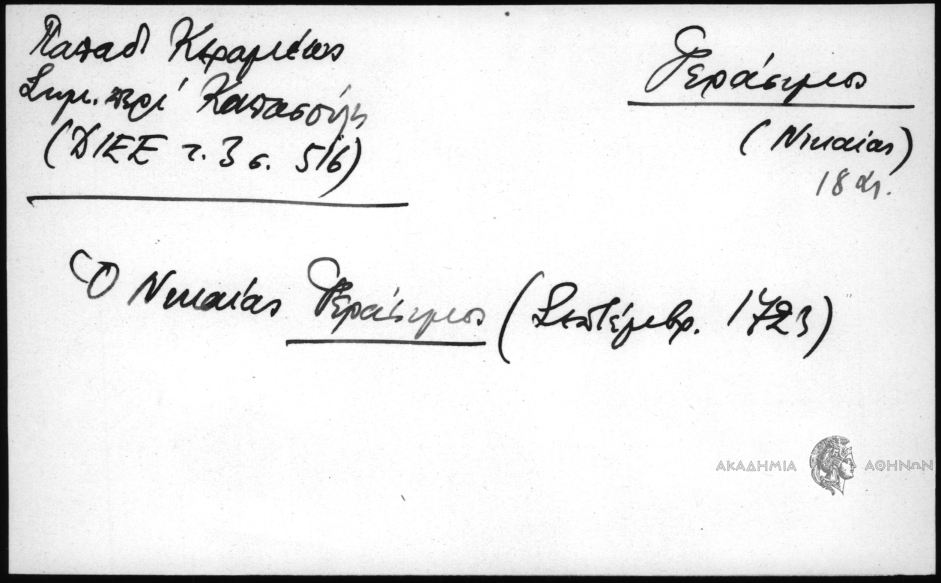 Παπαδ Κεραμέως
Σημ. περί Καπασούλη
(ΔΙΕΕ τ. 3 σ. 516)
Γεράσιμος
(Νικαίας)
18 αι.
Ὁ Νικαίας Γεράσιμος (Σεπτέμβρ. 1723)
ΑΚΑΔΗΜΙΑ ΑΘΗΝΩΝ